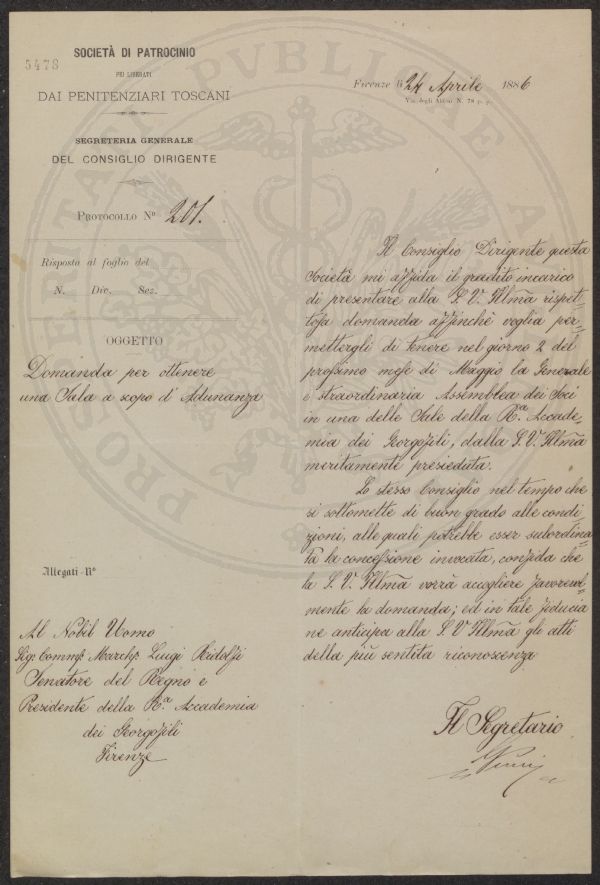 5478
SOCIETÀ DI PATROCINIO
PEI LIBERATI
DAI PENITENZIARI TOSCANI
SEGRETERIA GENERALE
DEL CONSIGLIO DIRIGENTE
PROTOCOLLO Nº 201.
Risposta al foglio del
N. Div. Sez.
OGGETTO
Domanda per ottenere
una Sala a scopo d'Adunanza
Firenze li 24 Aprile 1886
Via degli Alfani N. 78 p. p.
Il Consiglio Dirigente questa
Società mi affida il gradito incarico
di presentare alla S. V. Illma rispet=
tosa domanda affinchè voglia per=
mettergli di tenere nel giorno 2 del
prossimo mese di Maggio la Generale
e straordinaria Assemblea dei Soci
in una delle Sale della R.a Accade=
mia dei Georgofili, dalla S. V. Illma
meritamente presieduta.
Lo stesso Consiglio nel tempo che
si sottomette di buon grado alle condi=
zioni, alle quali potrebbe esser subordina=
ta la concessione invocata, confida che
la S. V. Illma vorrà acogliere favorevol=
mente la domanda; ed in tale fiducia
ne anticipa alla S. V. Illma gli atti
della più sentita riconoscenza
Il Segretario
Allegati Nº
Al Nobil Uomo
Sig. Comm. March. Luigi Ridolfi
Senatore del Regno e
Presidente della R.a Accademia
dei Georgofili
Firenze
PROSPERITATI PVBLICAE AV